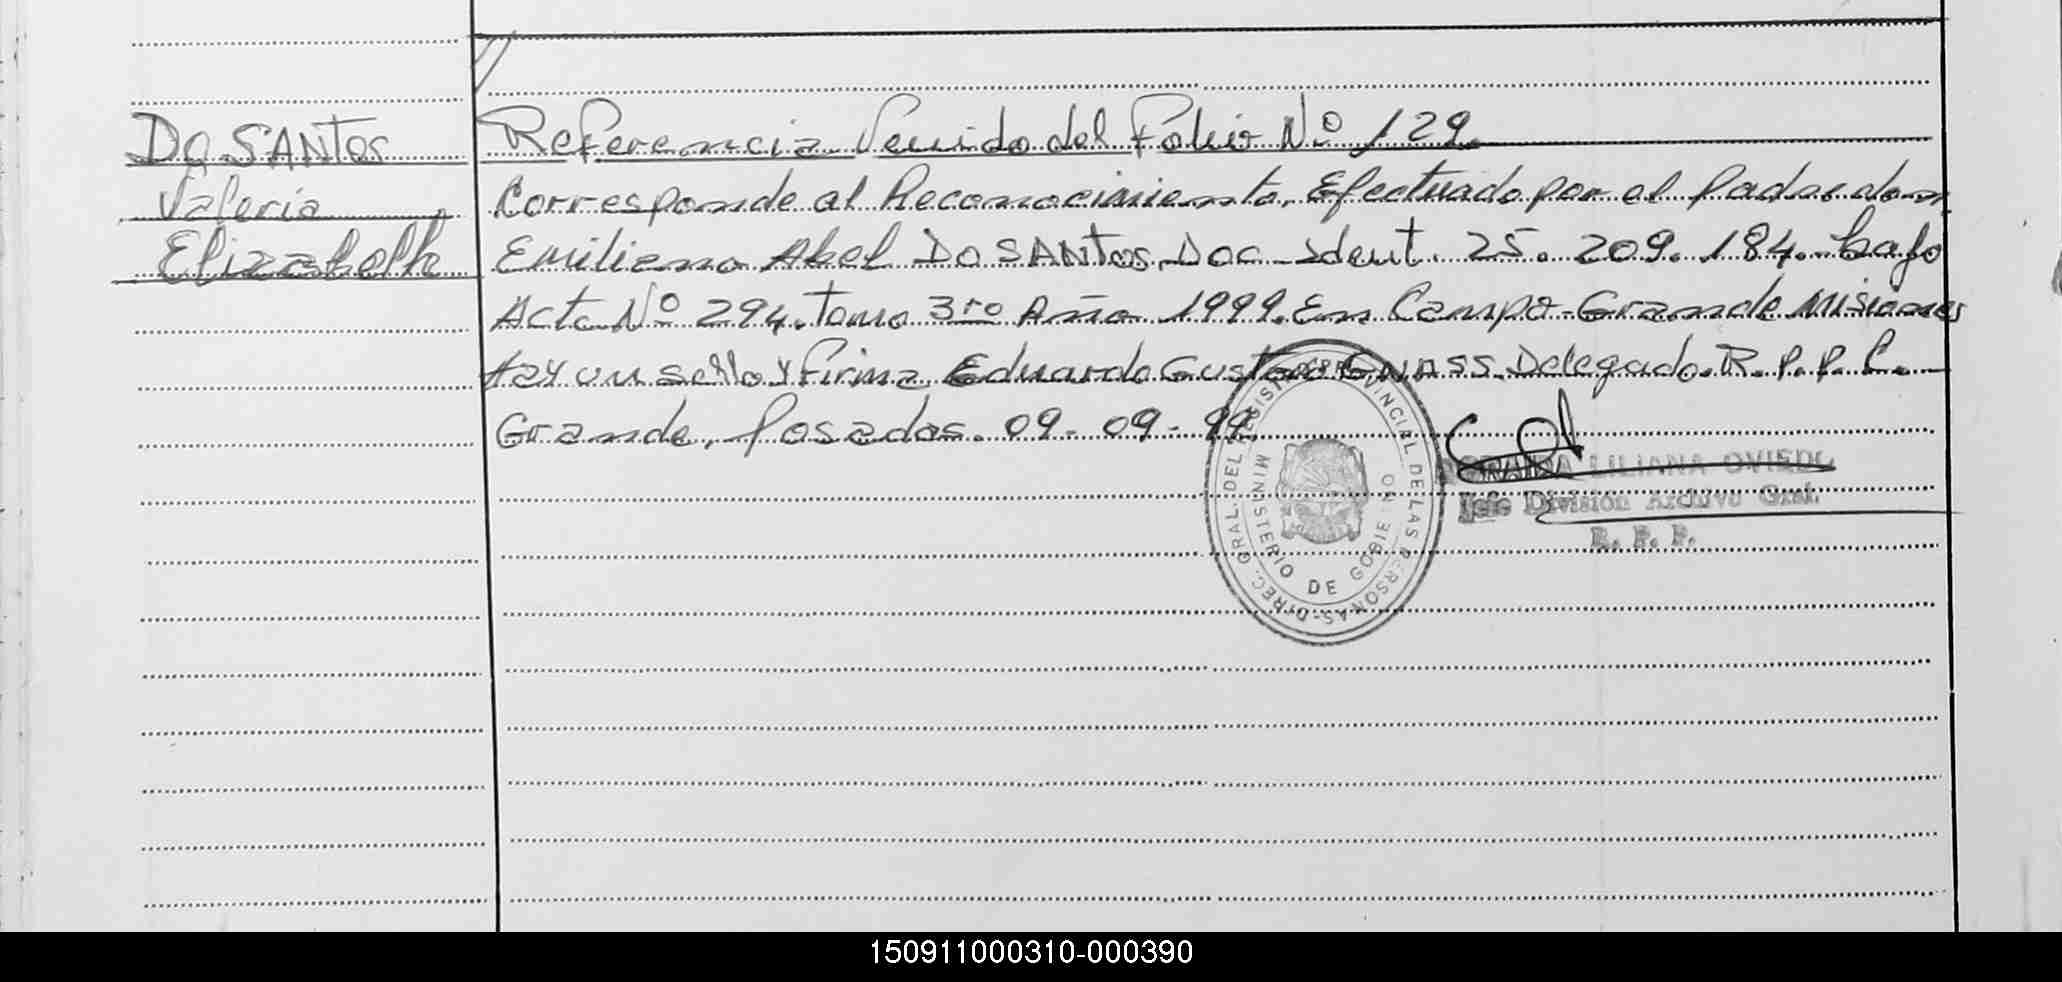 Do SANTos
Valeria
Elizabeth
Referencia Venido del Folio Nº 129.
Corresponde al Reconocimiento, Efectuado por el Padre don
Emiliano Abel Do SANTos, Doc-Ident. 25.209.184. bajo
Acta Nº 294. Tomo 3ro Año 1999. En Campo-Grande Misiones
Hay un Sello y Firma, Eduardo Gustavo Gnass. Delegado. R.P.P. C.
Grande, Posadas. 09-09-99.
LILIANA OVIEDO
Jefe División Archivo Gral.
R. P. P.
DIREC. GRAL. DEL REGISTRO PROVINCIAL DE LAS PERSONAS-
MINISTERIO DE GOBIERNO
150911000310-000390